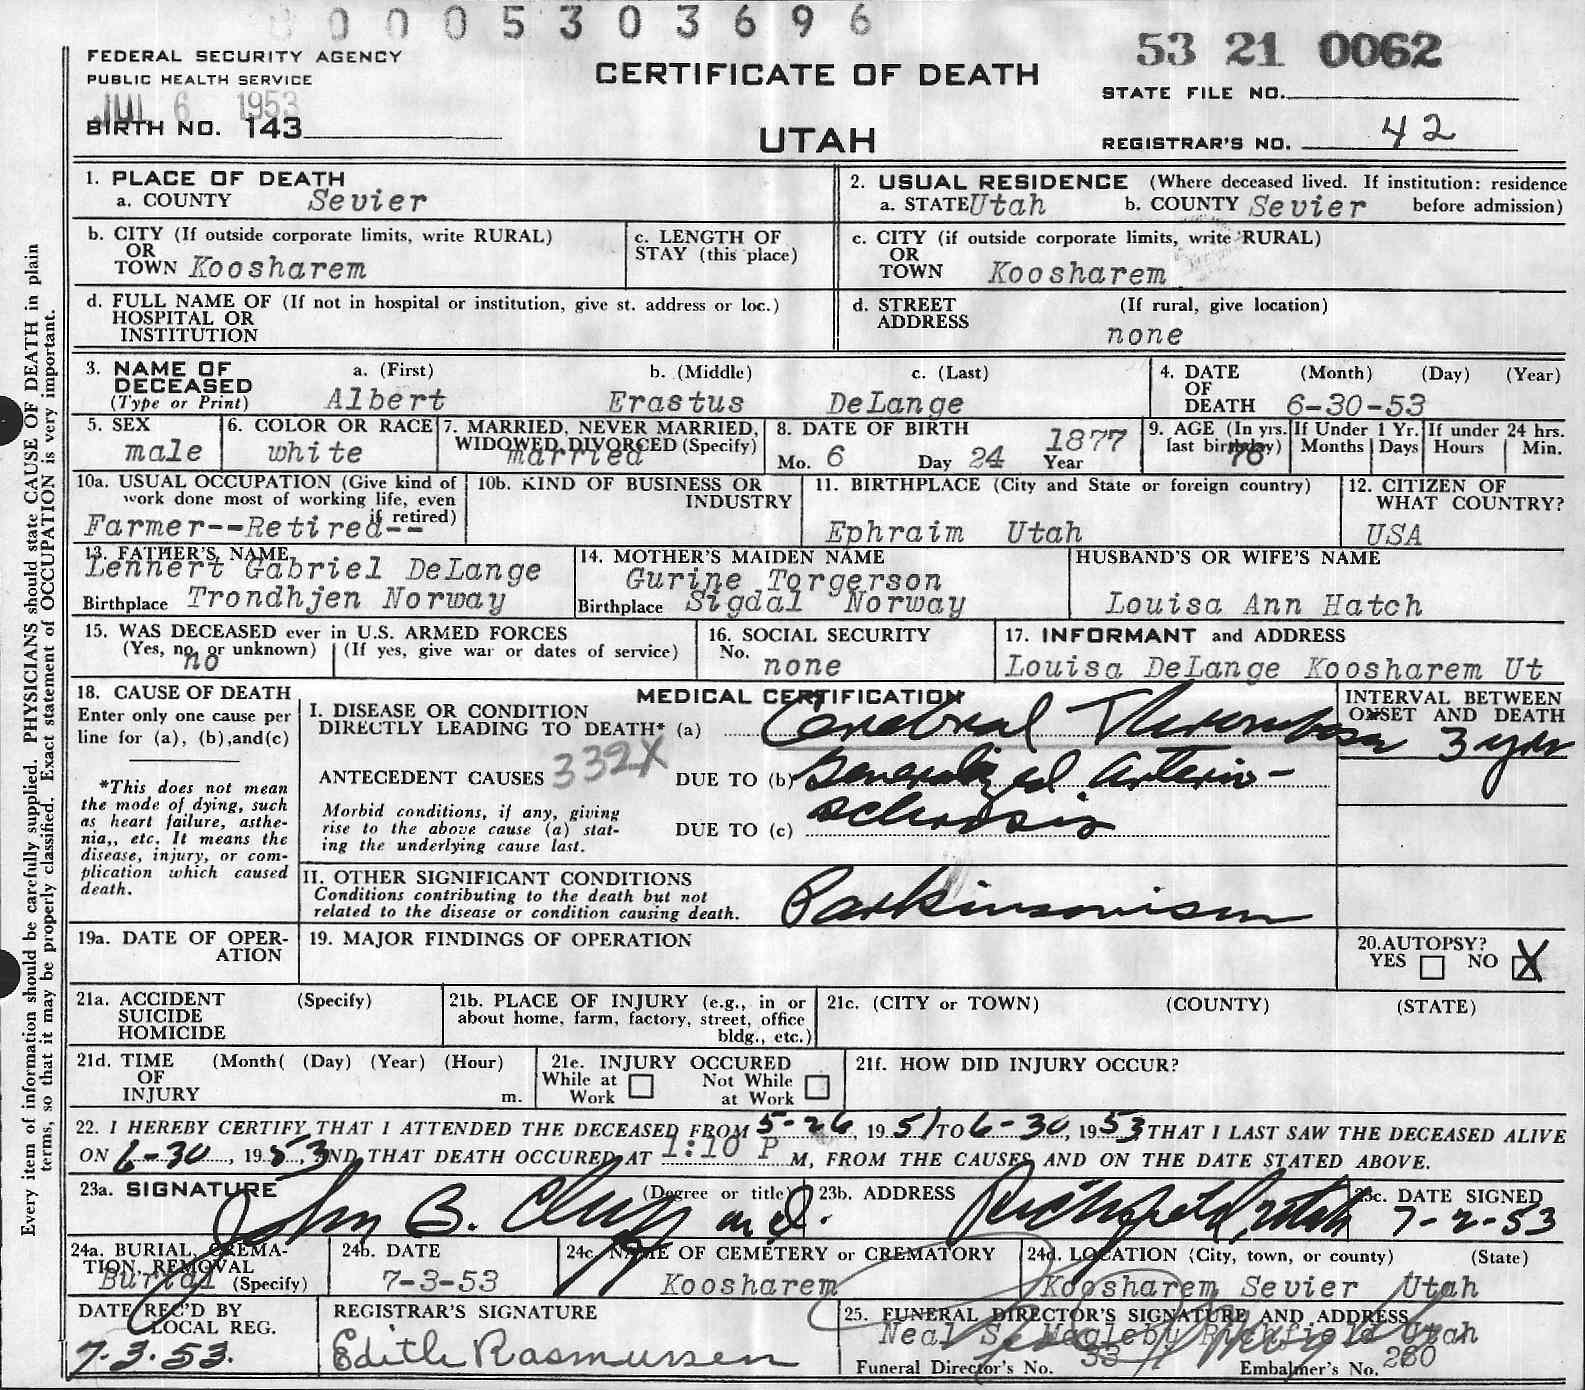 0005303696
53 21 0062
FEDERAL SECURITY AGENCY
PUBLIC HEALTH SERVICE
JUL 6 1953
BIRTH NO. 143
CERTIFICATE OF DEATH
UTAH
STATE FILE NO.
REGISTRAR'S NO. 42
1. PLACE OF DEATH
a. COUNTY Sevier
2. USUAL RESIDENCE (Where deceased lived. If institution: residence before admission)
a. STATE Utah b. COUNTY Sevier
b. CITY (If outside corporate limits, write RURAL)
OR
TOWN Koosharem
c. LENGTH OF
STAY (this place)
c. CITY (if outside corporate limits, write RURAL)
OR
TOWN Koosharem
d. FULL NAME OF (If not in hospital or institution, give st. address or loc.)
HOSPITAL OR
INSTITUTION
d. STREET (If rural, give location)
ADDRESS none
3. NAME OF DECEASED (Type or Print)
a. (First) b. (Middle) c. (Last)
Albert Erastus DeLange
4. DATE OF DEATH (Month) (Day) (Year)
6-30-53
5. SEX
male
6. COLOR OR RACE
white
7. MARRIED, NEVER MARRIED,
WIDOWED, DIVORCED (Specify)
married
8. DATE OF BIRTH
Mo. 6 Day 24 Year 1877
9. AGE (In yrs. last birthday) 76
If Under 1 Yr. Months Days
If under 24 hrs. Hours Min.
10a. USUAL OCCUPATION (Give kind of
work done most of working life, even
if retired)
Farmer--Retired--
10b. KIND OF BUSINESS OR
INDUSTRY
11. BIRTHPLACE (City and State or foreign country)
Ephraim Utah
12. CITIZEN OF
WHAT COUNTRY?
USA
13. FATHER'S NAME
Lennert Gabriel DeLange
Birthplace Trondhjen Norway
14. MOTHER'S MAIDEN NAME
Gurine Torgerson
Birthplace Sigdal Norway
HUSBAND'S OR WIFE'S NAME
Louisa Ann Hatch
15. WAS DECEASED ever in U.S. ARMED FORCES
(Yes, no, or unknown) (If yes, give war or dates of service)
no
16. SOCIAL SECURITY
No. none
17. INFORMANT and ADDRESS
Louisa DeLange Koosharem Ut
18. CAUSE OF DEATH
Enter only one cause per
line for (a), (b),and(c)
*This does not mean
the mode of dying, such
as heart failure, asthe-
nia,, etc. It means the
disease, injury, or com-
plication which caused
death.
MEDICAL CERTIFICATION
I. DISEASE OR CONDITION
DIRECTLY LEADING TO DEATH* (a) Cerebral Thrombosis
INTERVAL BETWEEN
ONSET AND DEATH
3 yrs
ANTECEDENT CAUSES 332X DUE TO (b) Generalized Arterio-
sclerosis
Morbid conditions, if any, giving
rise to the above cause (a) stat-
ing the underlying cause last.
DUE TO (c)
II. OTHER SIGNIFICANT CONDITIONS
Conditions contributing to the death but not
related to the disease or condition causing death.
Parkinsonism
19a. DATE OF OPER-
ATION
19. MAJOR FINDINGS OF OPERATION
20. AUTOPSY?
YES NO X
21a. ACCIDENT (Specify)
SUICIDE
HOMICIDE
21b. PLACE OF INJURY (e.g., in or
about home, farm, factory, street, office
bldg., etc.)
21c. (CITY or TOWN) (COUNTY) (STATE)
21d. TIME (Month( (Day) (Year) (Hour)
OF
INJURY m.
21e. INJURY OCCURED
While at Work Not While at Work
21f. HOW DID INJURY OCCUR?
22. I HEREBY CERTIFY THAT I ATTENDED THE DECEASED FROM 5-26, 1951 TO 6-30, 1953 THAT I LAST SAW THE DECEASED ALIVE
ON 6-30, 1953, AND THAT DEATH OCCURED AT 1:10 P M, FROM THE CAUSES AND ON THE DATE STATED ABOVE.
23a. SIGNATURE (Degree or title)
John B. Cluff M.D.
23b. ADDRESS
Richfield, Utah
23c. DATE SIGNED
7-2-53
24a. BURIAL, CREMA-
TION, REMOVAL
(Specify)
Burial
24b. DATE
7-3-53
24c. NAME OF CEMETERY or CREMATORY
Koosharem
24d. LOCATION (City, town, or county) (State)
Koosharem Sevier Utah
DATE REC'D BY
LOCAL REG.
7.3.53.
REGISTRAR'S SIGNATURE
Edith Rasmussen
25. FUNERAL DIRECTOR'S SIGNATURE AND ADDRESS
Neal S. Magleby Richfield Utah
Funeral Director's No. 33 Embalmer's No. 260
Every item of information should be carefully supplied. PHYSICIANS should state CAUSE OF DEATH in plain
terms, so that it may be properly classified. Exact statement of OCCUPATION is very important.